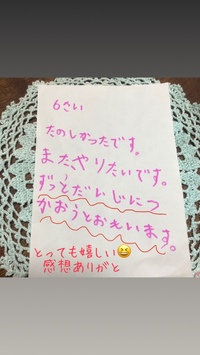 6さい
たのしかったです。
またやりたいです。
ずっとだいじにつ
かおうとおもいます。
とっても嬉しい😆
感想ありがと